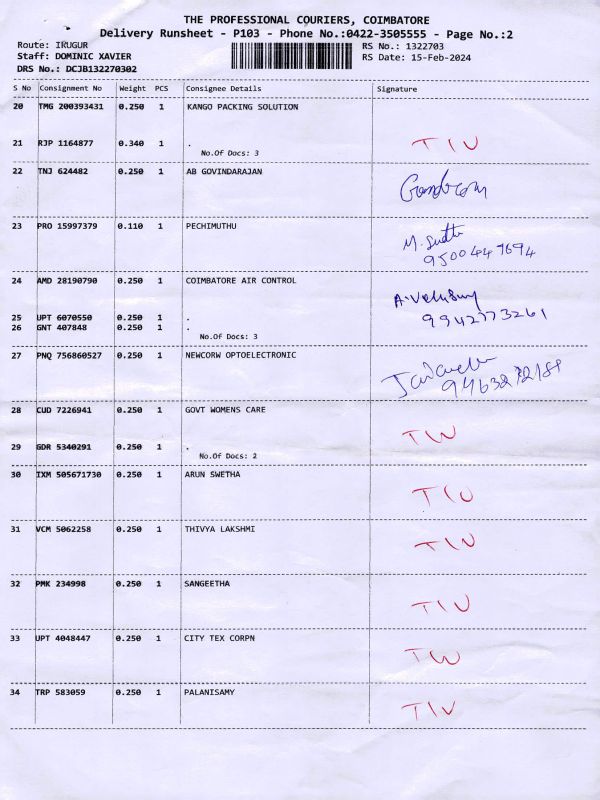 THE PROFESSIONAL COURIERS, COIMBATORE
Delivery Runsheet - P103 - Phone No.:0422-3505555 - Page No.:2
Route: IRUGUR RS No.: 1322703
Staff: DOMINIC XAVIER RS Date: 15-Feb-2024
DRS No.: DCJB132270302
S No Consignment No Weight PCS Consignee Details Signature
20 TMG 200393431 0.250 1 KANGO PACKING SOLUTION
21 RJP 1164877 0.340 1 .
No.Of Docs: 3
22 TNJ 624482 0.250 1 AB GOVINDARAJAN
23 PRO 15997379 0.110 1 PECHIMUTHU
9500447694
24 AMD 28190790 0.250 1 COIMBATORE AIR CONTROL
25 UPT 6070550 0.250 1 . 9942773261
26 GNT 407848 0.250 1 .
No.Of Docs: 3
27 PNQ 756860527 0.250 1 NEWCORW OPTOELECTRONIC
28 CUD 7226941 0.250 1 GOVT WOMENS CARE
29 GDR 5340291 0.250 1 .
No.Of Docs: 2
30 IXM 505671730 0.250 1 ARUN SWETHA
31 VCM 5062258 0.250 1 THIVYA LAKSHMI
32 PMK 234998 0.250 1 SANGEETHA
33 UPT 4048447 0.250 1 CITY TEX CORPN
34 TRP 583059 0.250 1 PALANISAMY